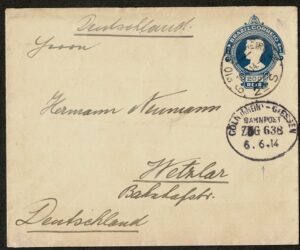 Deutschland.
BRAZIL CORREIO
Herrn
200
REIS
Hermann Neumann
CÖLN (RHEIN) - GIESSEN
BAHNPOST
ZUG 638
6.6.14
Wetzlar
Bahnhofstr.
Deutschland